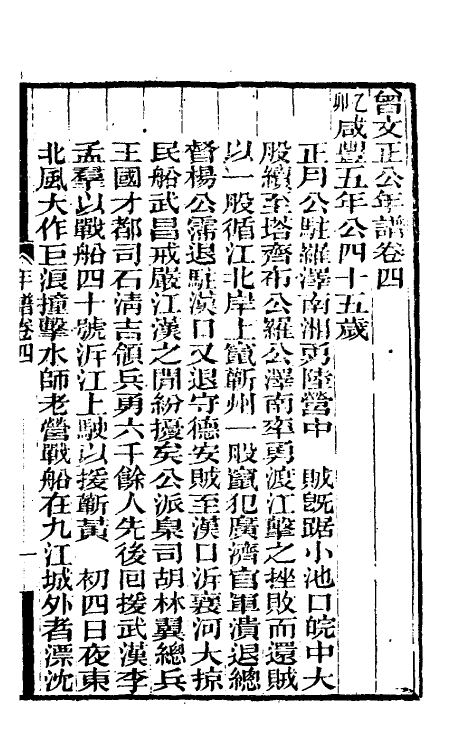 曾文正公年譜卷四
乙卯咸豐五年公四十五歲
正月公駐羅澤南湘勇陸營中　賊旣踞小池口皖中大
股續至塔齊布公羅公澤南率勇渡江擊之挫敗而還賊
以一股循江北岸上竄蘄州一股竄犯廣濟官軍潰退總
督楊公霈退駐漢口又退守德安賊至漢口泝襄河大掠
民船武昌戒嚴江漢之閒紛擾矣公派臬司胡林翼總兵
王國才都司石清吉領兵勇六千餘人先後囘援武漢李
孟羣以戰船四十號泝江上駛以援蘄黃　初四日夜東
北風大作巨浪撞擊水師老營戰船在九江城外者漂沈
年譜卷四
一